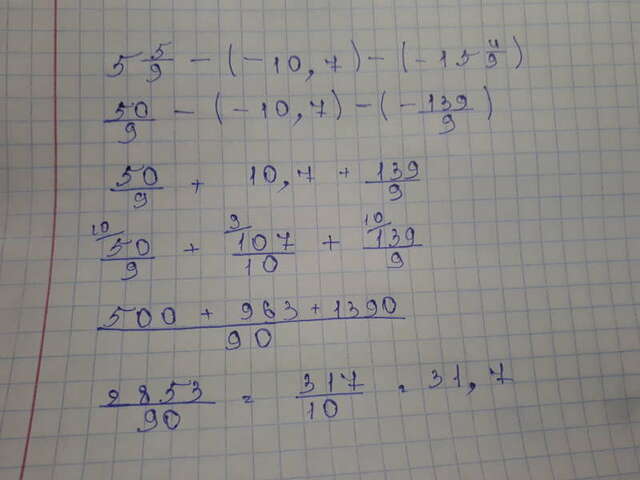 5 5/9 - (-10,7) - (-15 4/9)
50/9 - (-10,7) - (-139/9)
50/9 + 10,7 + 139/9
10/ 50/9 + 9/ 107/10 + 10/ 139/9
500 + 963 + 1390 / 90
2853/90 = 317/10 = 31,7